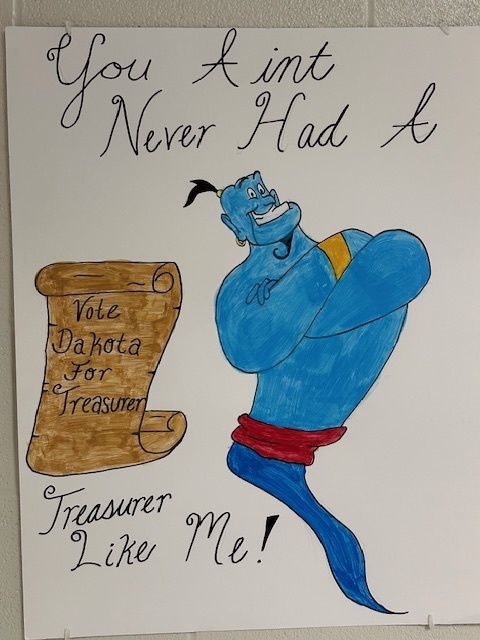 You Aint
Never Had A
Vote
Dakota
For
Treasurer
Treasurer
Like Me!